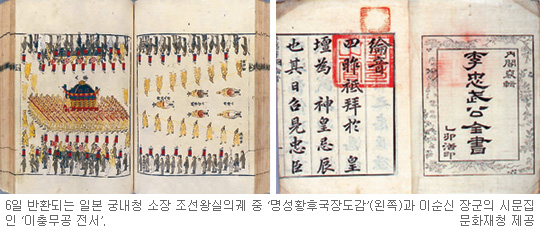 內閣裒輯
李忠武公全書
乙卯活印
綸音
日昨祗拜於 皇
壇為 神皇忌辰
也其日召見忠臣
6일 반환되는 일본 궁내청 소장 조선왕실의궤 중 '명성황후국장도감'(왼쪽)과 이순신 장군의 시문집
인 '이충무공 전서'. 문화재청 제공